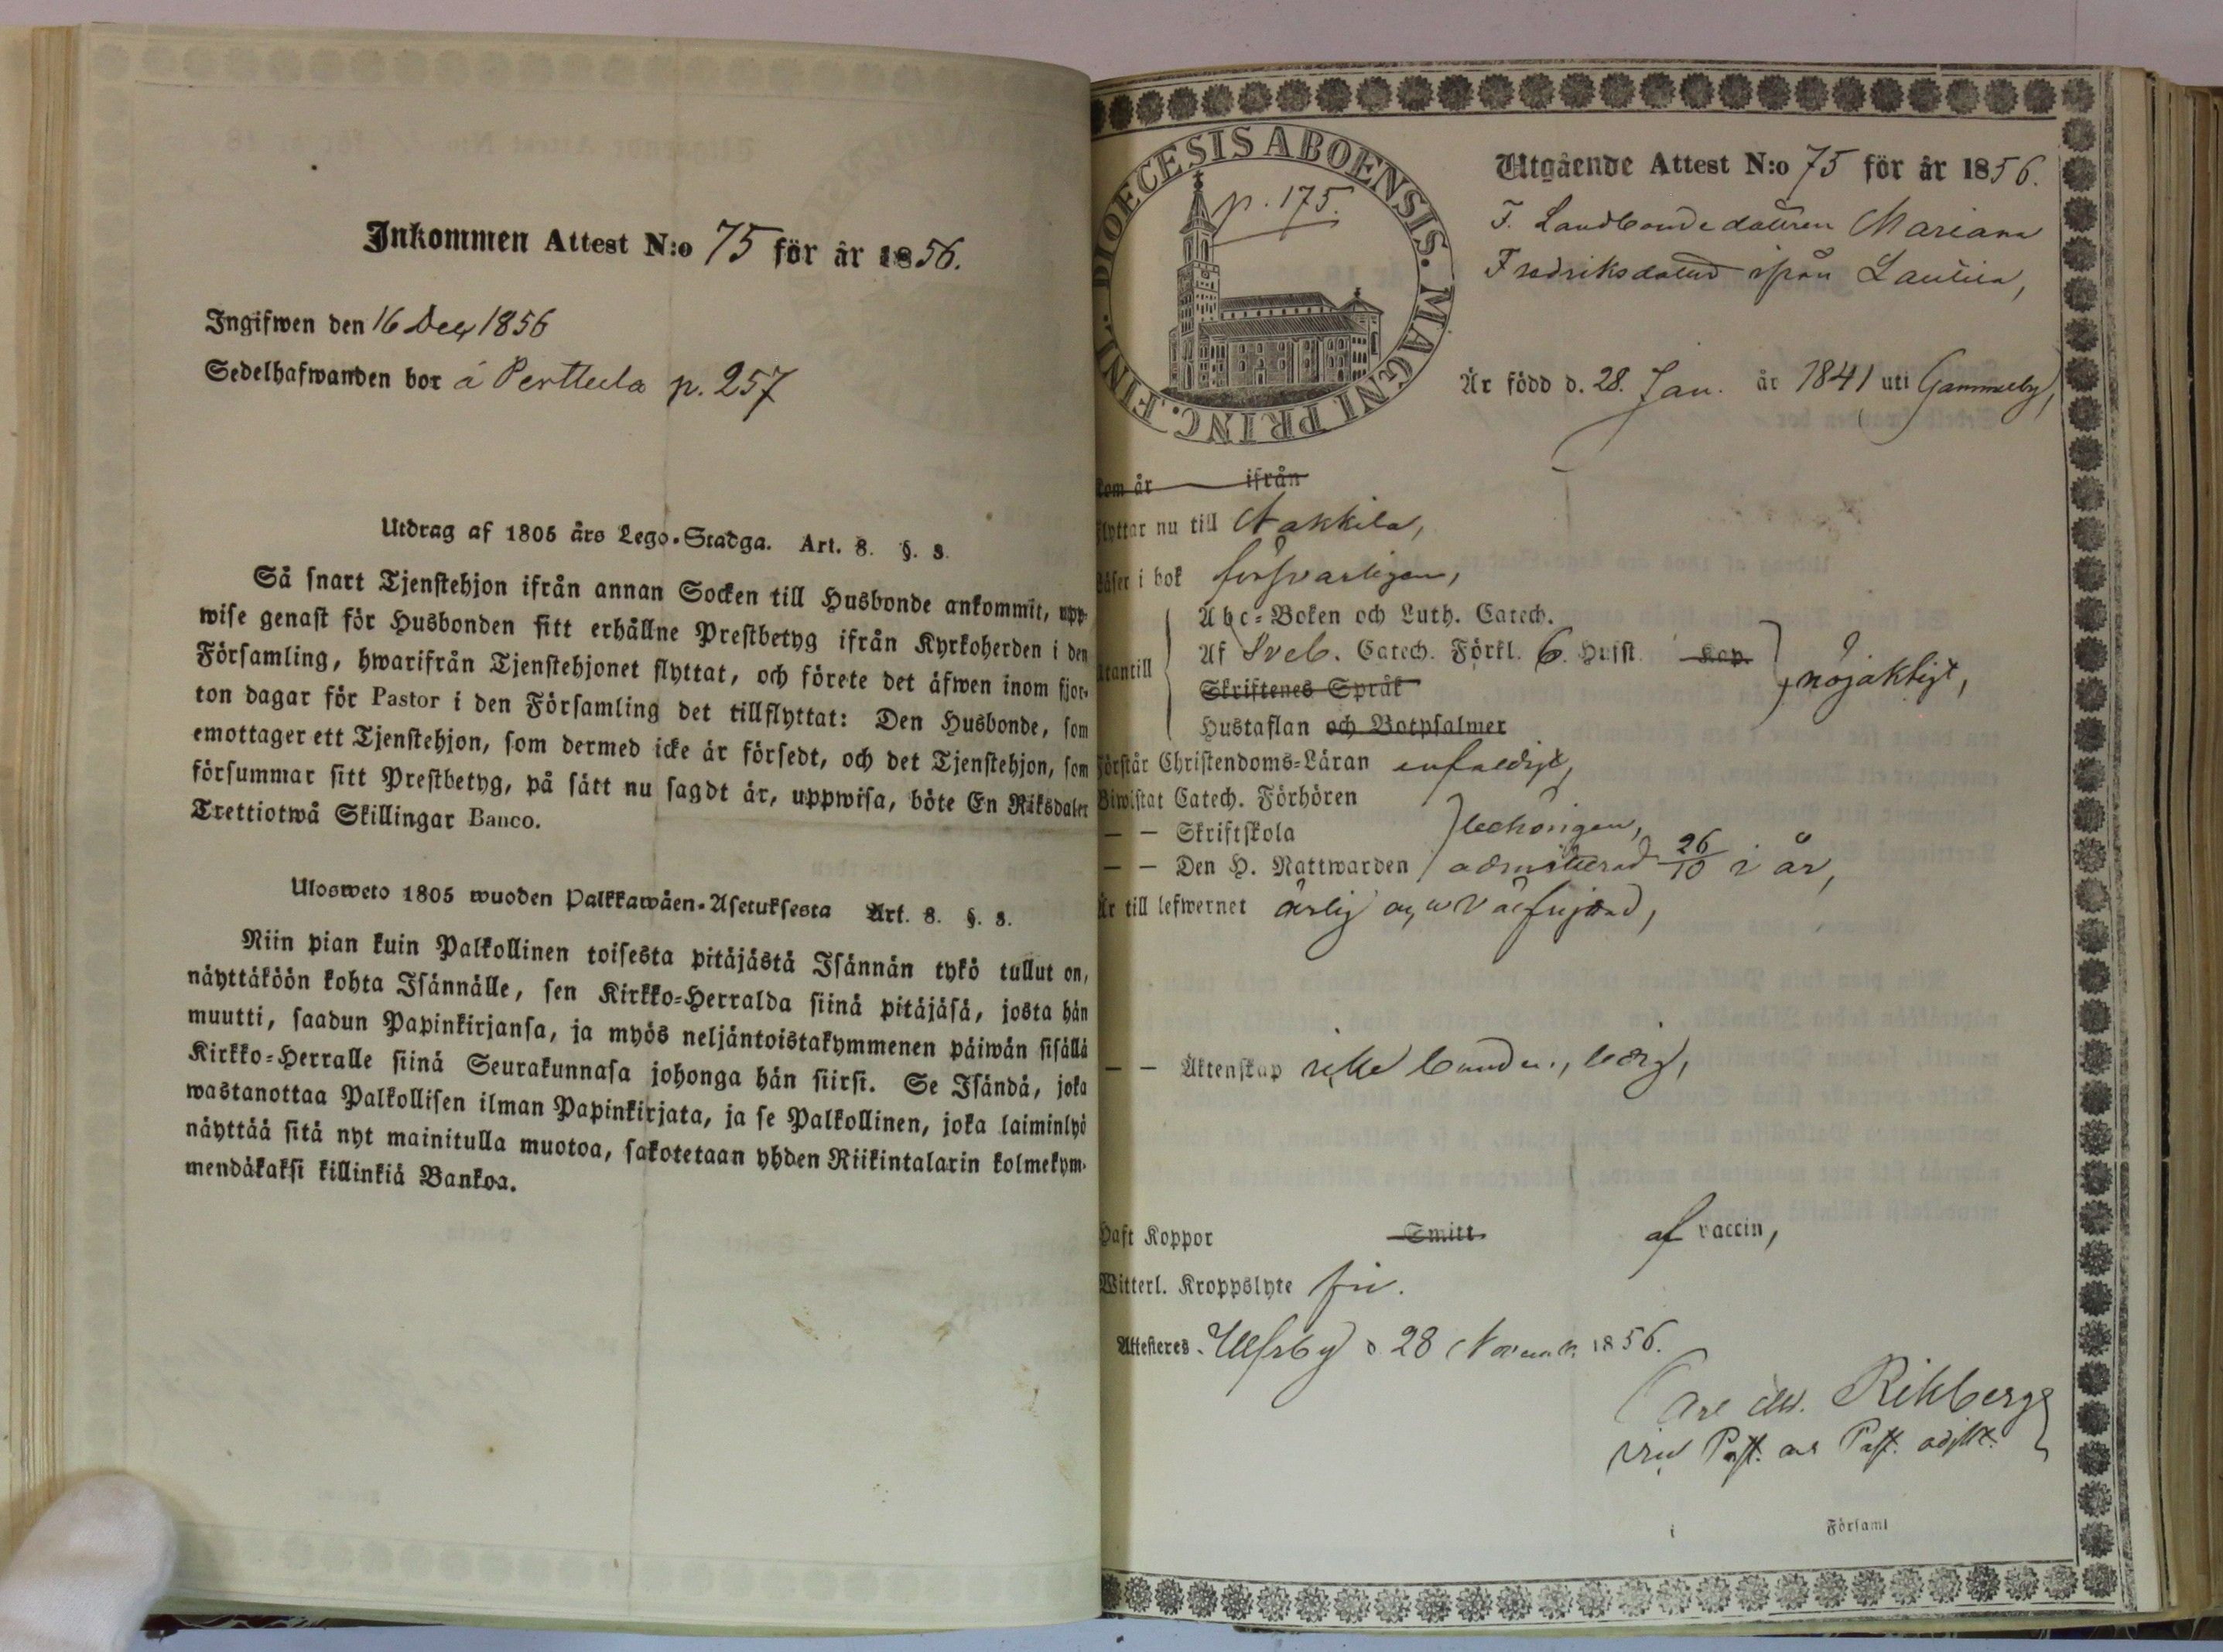 Inkommen Attest N:o 75 för år 1856.
Ingifwen den 16 Dec 1856
Sedelhafwanden bor å Perttula p. 257
Utdrag af 1805 års Lego-Stadga. Art. 8. §. 3.
Så snart Tjenstehjon ifrån annan Socken till Husbonde ankommit, upp-
wise genast för Husbonden sitt erhållne Prestbetyg ifrån Kyrkoherden i den
Församling, hwarifrån Tjenstehjonet flyttat, och förete det äfwen inom fjor-
ton dagar för Pastor i den Församling det tillflyttat: Den Husbonde, som
emottager ett Tjenstehjon, som dermed icke är försedt, och det Tjenstehjon, som
försummar sitt Prestbetyg, på sätt nu sagdt är, uppwisa, böte En Riksdaler
Trettiotwå Skillingar Banco.
Ulosweto 1805 wuoden Palkkawäen-Asetuksesta Art. 8. §. 3.
Niin pian kuin Palkollinen toisesta pitäjästä Isännän tykö tullut on,
näyttäköön kohta Isännälle, sen Kirkko-Herralda siinä pitäjäsä, josta hän
muutti, saadun Papinkirjansa, ja myös neljäntoistakymmenen päiwän sisällä
Kirkko-Herralle siinä Seurakunnasa johonga hän siirsi. Se Isändä, joka
wastanottaa Palkollisen ilman Papinkirjata, ja se Palkollinen, joka laiminlyö
näyttää sitä nyt mainitulla muotoa, sakotetaan yhden Riikintalarin kolmekym-
mendäkaksi killinkiä Bankoa.
DIOECESIS ABOENSIS. MAGNI PRINC. FINL.
p. 175.
Utgående Attest N:o 75 för år 1856.
F. Landbondedottren Mariana
Fredriksdotter ifrån Lautila,
Är född d. 28. Jan. år 1841 uti Gammelby,
kom år ifrån
flyttar nu till Nakkila,
läser i bok försvarligen,
Abc-Boken och Luth. Catech.
utantill Af Sveb. Catech. Förkl. 6. Hufst. Kap. nöjaktigt,
Skriftenes Språk
Hustaflan och Botpsalmer
förstår Christendoms-Läran enfaldigt,
Biwistat Catech. Förhören
— — Skriftskola behörigen,
— — Den H. Nattwarden admitterad 26/10 i år,
Är till lefwernet ärlig och välfrejdad,
— — Äktenskap icke bunden, ledig,
Haft Koppor Smitt af vaccin,
Witterl. Kroppslyte fri.
Attesteres. Ulfsby d 28 Novemb. 1856.
Carl Rikberg
vice Past. Past. adjkt.
i Församl